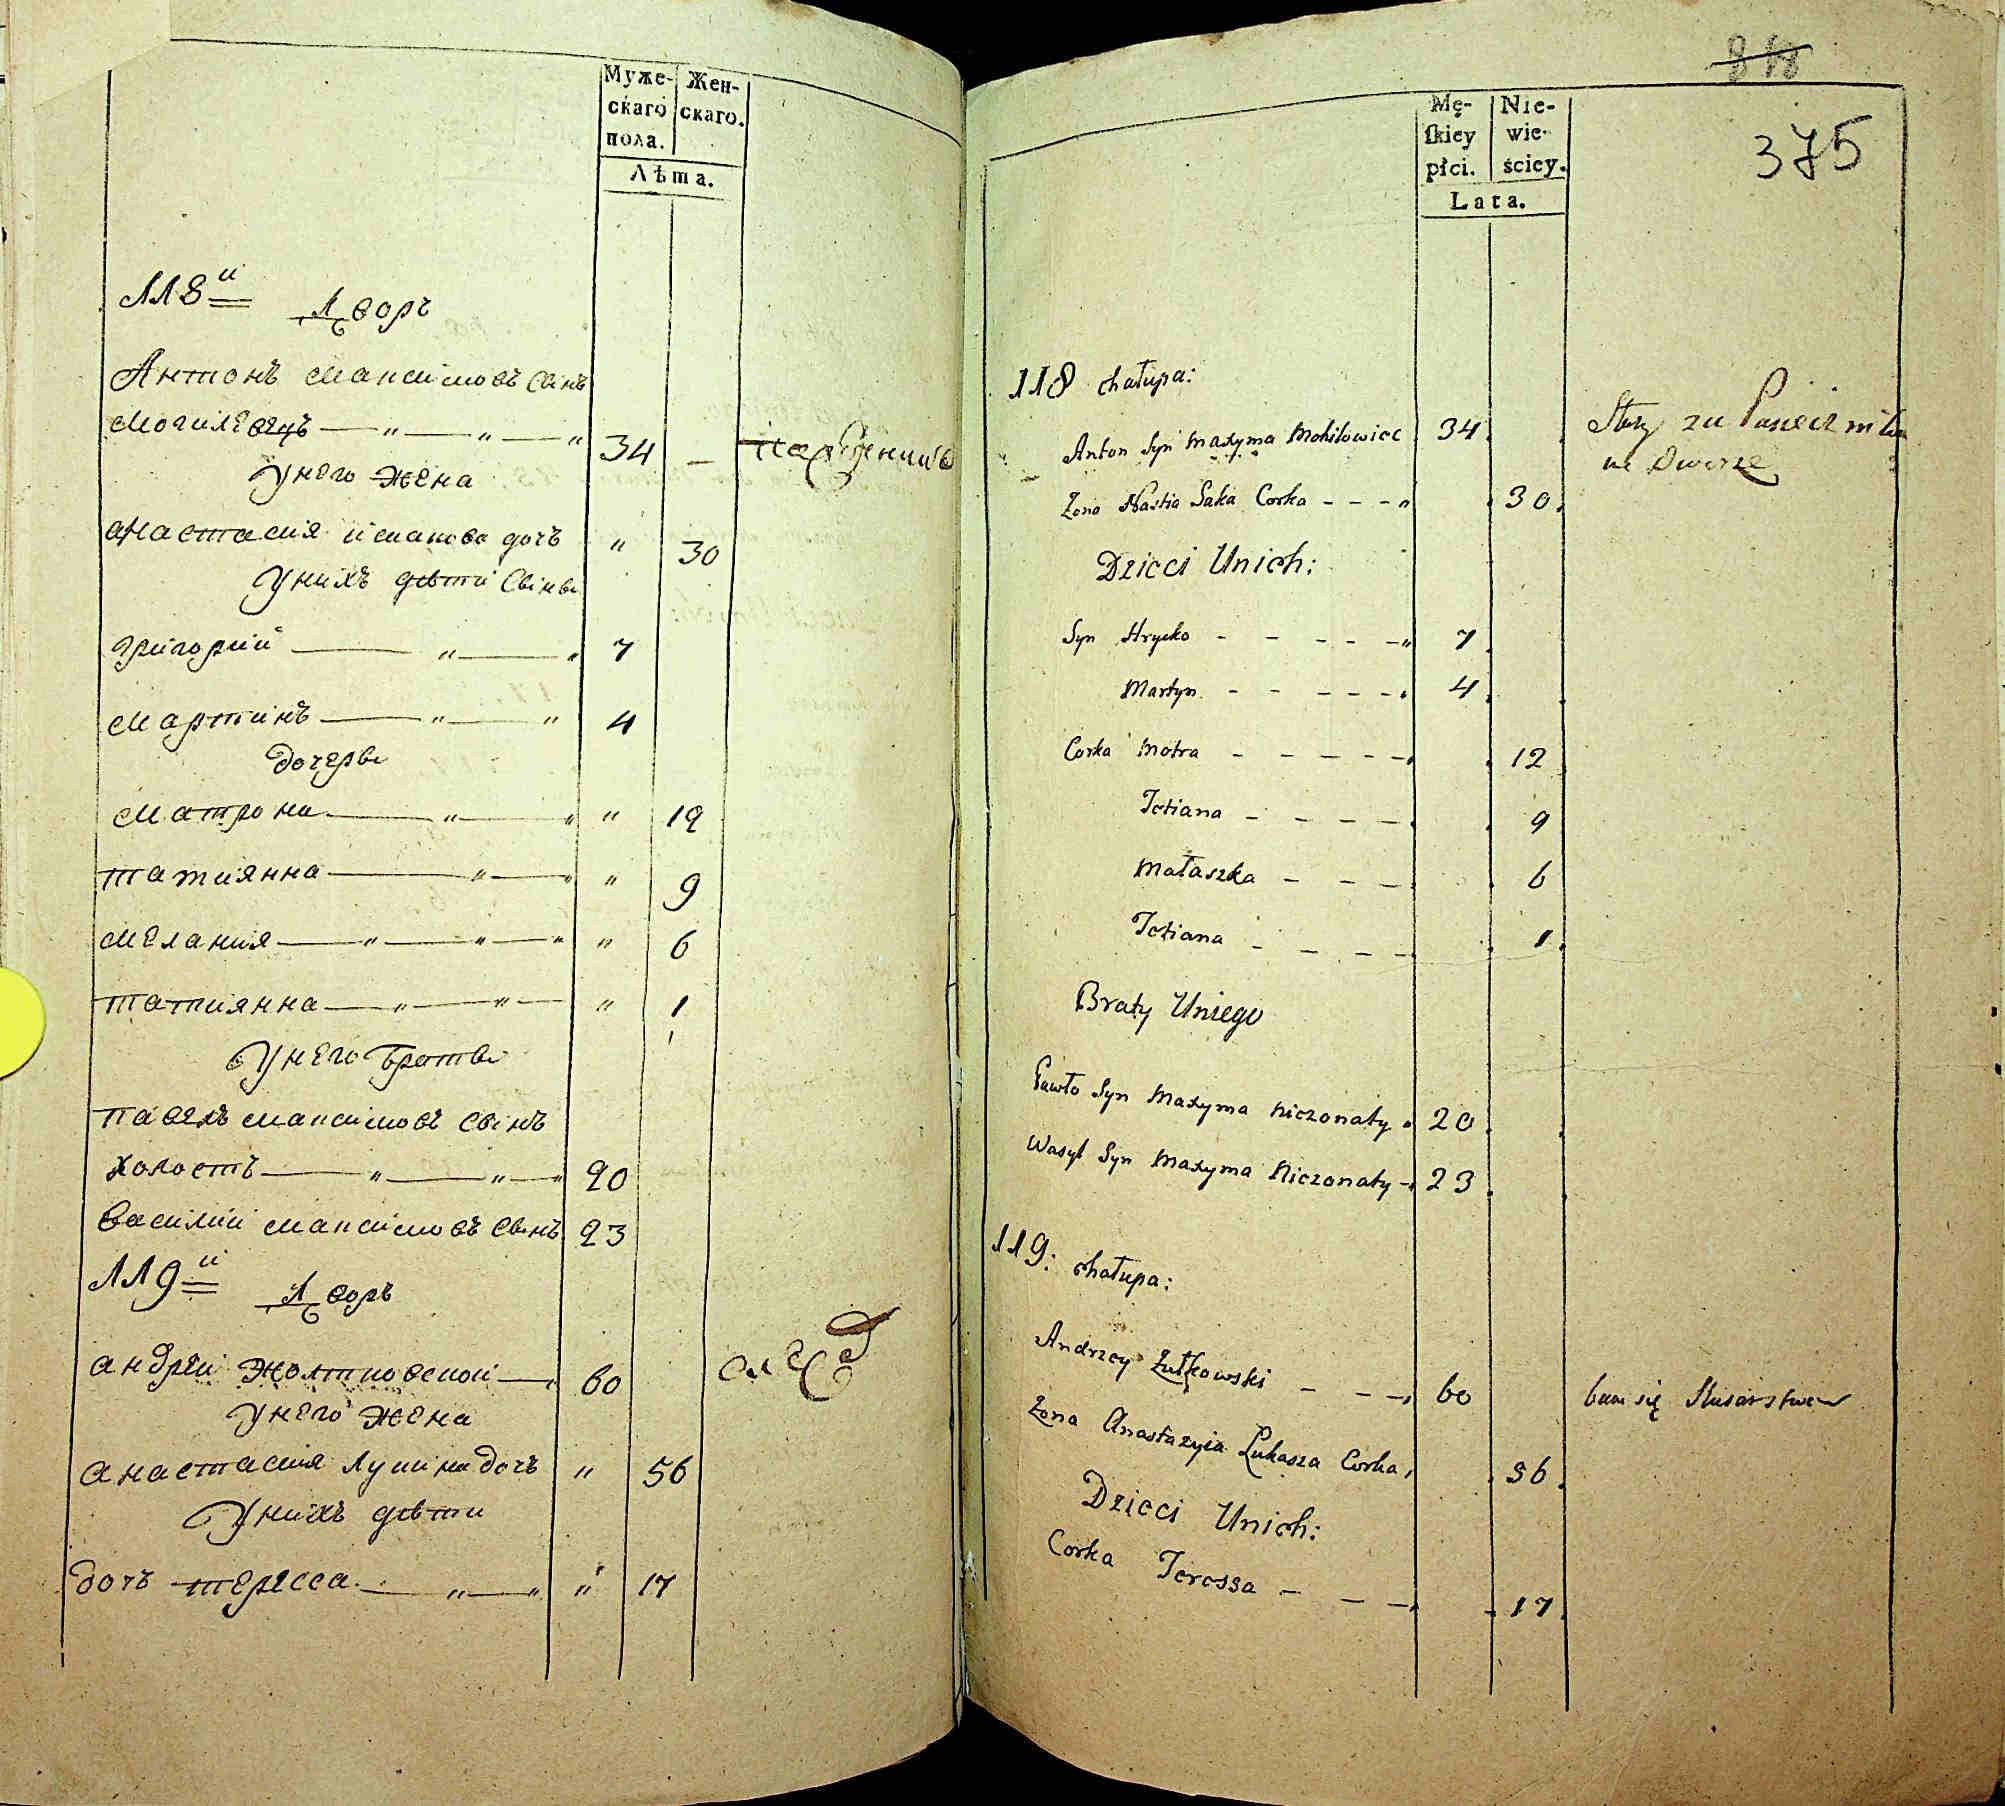 Муже-
скаго
пола.
Жен-
скаго.
Лѣта.
118й Дворъ
Антонъ Максимовъ Сынъ
Могилевецъ — „ — „ — „ 34 —
У него жена
Анастасия Исакова дочь „ 30
У нихъ дѣти Сыны
Григорий — „ — „ 7
Мартинъ — „ — „ 4
Дочеры
Матрона — „ — „ „ 12
Татиянна — „ — „ „ 9
Мелания — „ — „ — „ „ 6
Татиянна — „ — „ — „ 1
У него Браты
Павелъ Максимовъ Сынъ
Холостъ — „ — „ — „ 20
Василий Максимовъ Сынъ 23
119й Дворъ
Андрей Жолтковской — 60
У него жена
Анастасия Лукина дочь „ 56
У нихъ дѣти
дочь Тересса — „ — „ „ 17
818
375
Mę-
skiey
płci.
Nie-
wie-
ściey.
Lata.
118 chałupa:
Anton Syn Maxyma Mohilowiec 34
na Dworze
Zona Nastia Saka Corka - - - „ 30.
Dzieci Unich:
Syn Hrycko - - - - - „ 7
Martyn - - - - - 4
Corka Motra - - - - - 12
Tetiana - - - - - 9
Małaszka - - - 6
Tetiana - - - - 1
Braty Uniego
Pawło Syn Maxyma Niezonaty 20
Wasyl Syn Maxyma Niezonaty - 23
119: chałupa:
Andrzey Żułkowski - - - 60
bawi się Slusarstwem
Zona Anastazyia Łukasza Corka, 56.
Dzieci Unich:
Corka Teressa - - - 17